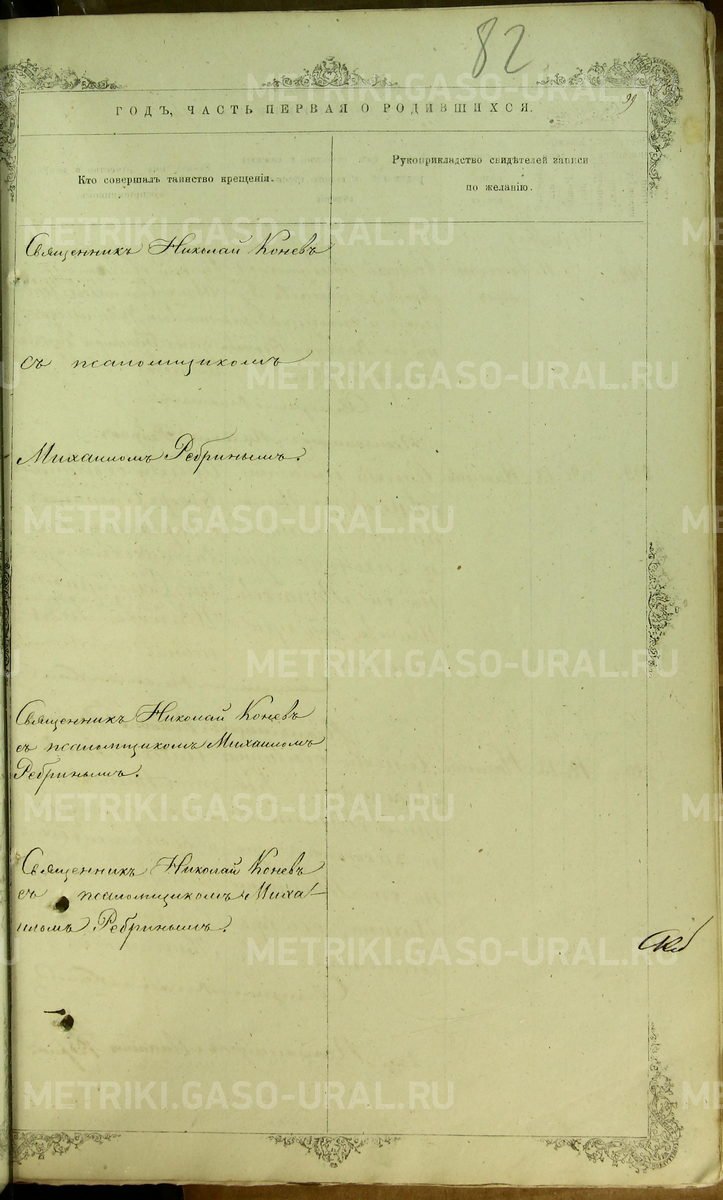 82
ГОДЪ, ЧАСТЬ ПЕРВАЯ О РОДИВШИХСЯ.
Кто совершалъ таинство крещенія.
Рукоприкладство свидѣтелей записи
по желанію.
Священникъ Николай Коневъ
съ псаломщикомъ
Михаиломъ Ребринымъ.
Священникъ Николай Коневъ
съ псаломщикомъ Михаиломъ
Ребринымъ.
Священникъ Николай Коневъ
съ псаломщикомъ Миха-
иломъ Ребринымъ.
METRIKI.GASO-URAL.RU